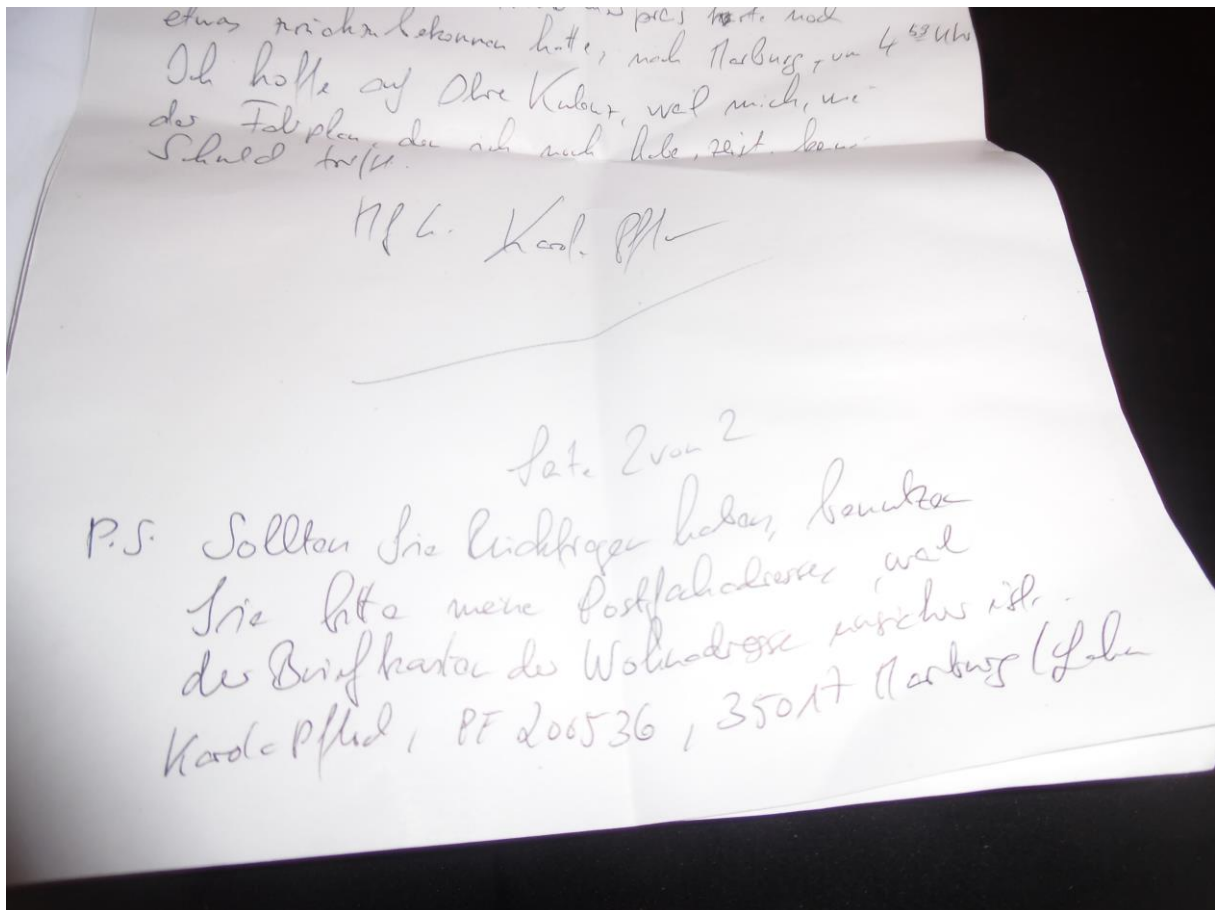 etwas bekommen hatte, nach Marburg, um 4 58 Uhr
Ich hoffe auf Ihre Kulanz, weil mich, wie
der Fahrplan, den ich noch habe, zeigt, keine
Schuld trifft.
MfG.
Seite 2 von 2
P.S. Sollten Sie Rückfragen haben, benutzen
Sie bitte meine Postfachadresse, weil
der Briefkasten der Wohnadresse unsicher ist.
PF 200536, 35017 Marburg/Lahn